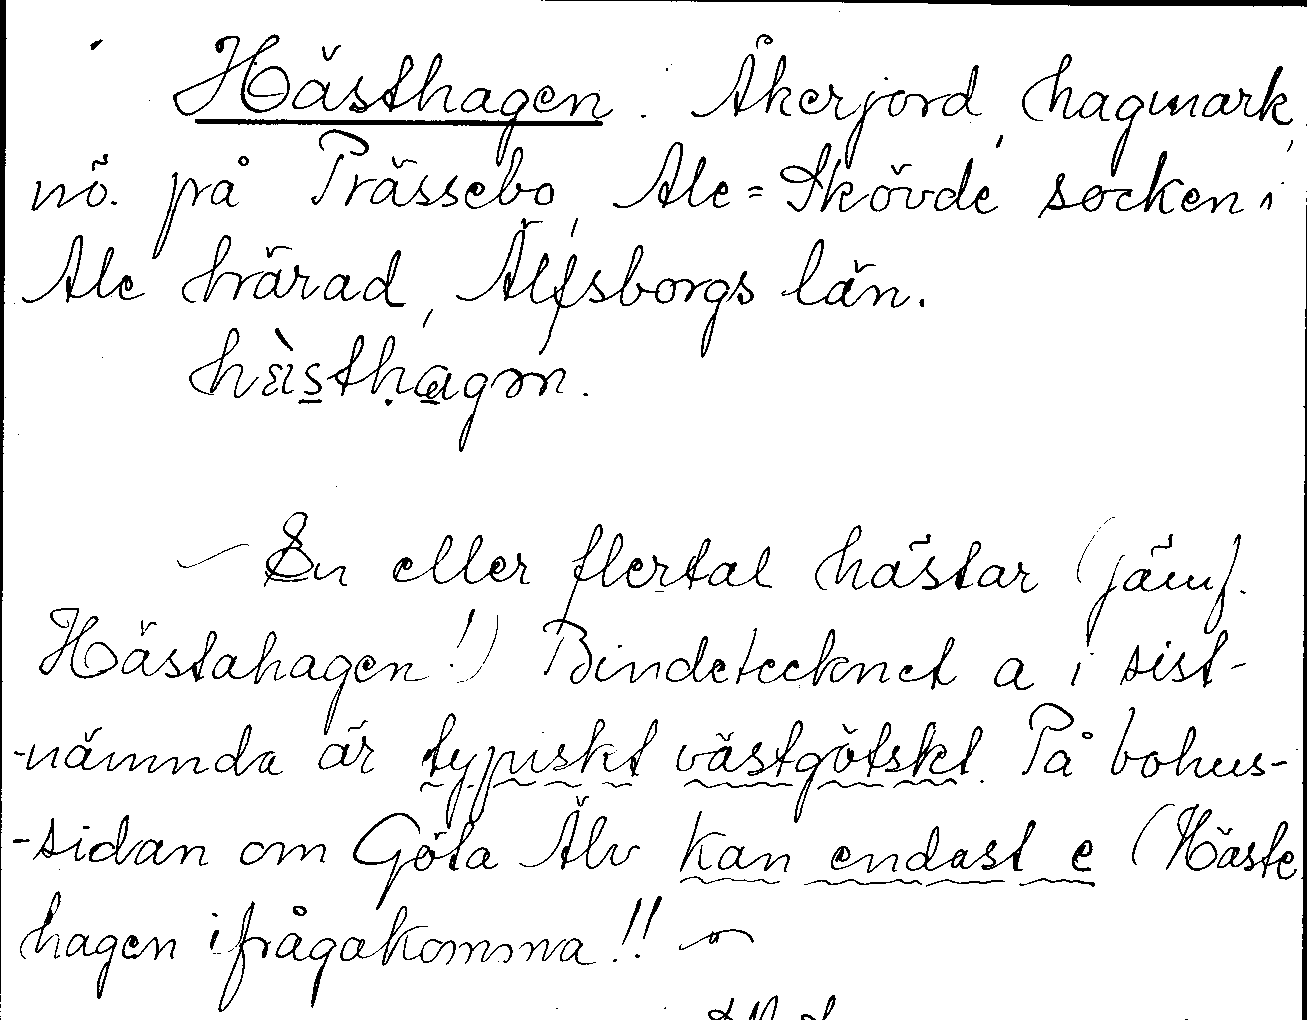 Hästhagen. Åkerjord, hagmark,
nö. på Prässebo, Ale-Skövde socken i
Ale härad, Älfsborgs län.
hàsthagən.
– En eller flertal hästar (jämf.
Hästahagen!) Bindetecknet a i sist-
-nämnda är typiskt västgötskt. På bohus-
-sidan om Göta Älv kan endast e (Häste
hagen ifrågakomma!!